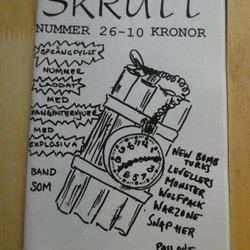 SKRUTT
NUMMER 26-10 KRONOR
SPRÄNGFYLLT
NUMMER
LADDAT
MED
PANGINTERVJUER
MED
EXPLOSIVA
BAND
SOM
NEW BOMB
TURKS
LEVELLERS
MONSTER
WOLFPACK
WARZONE
SNAP HER